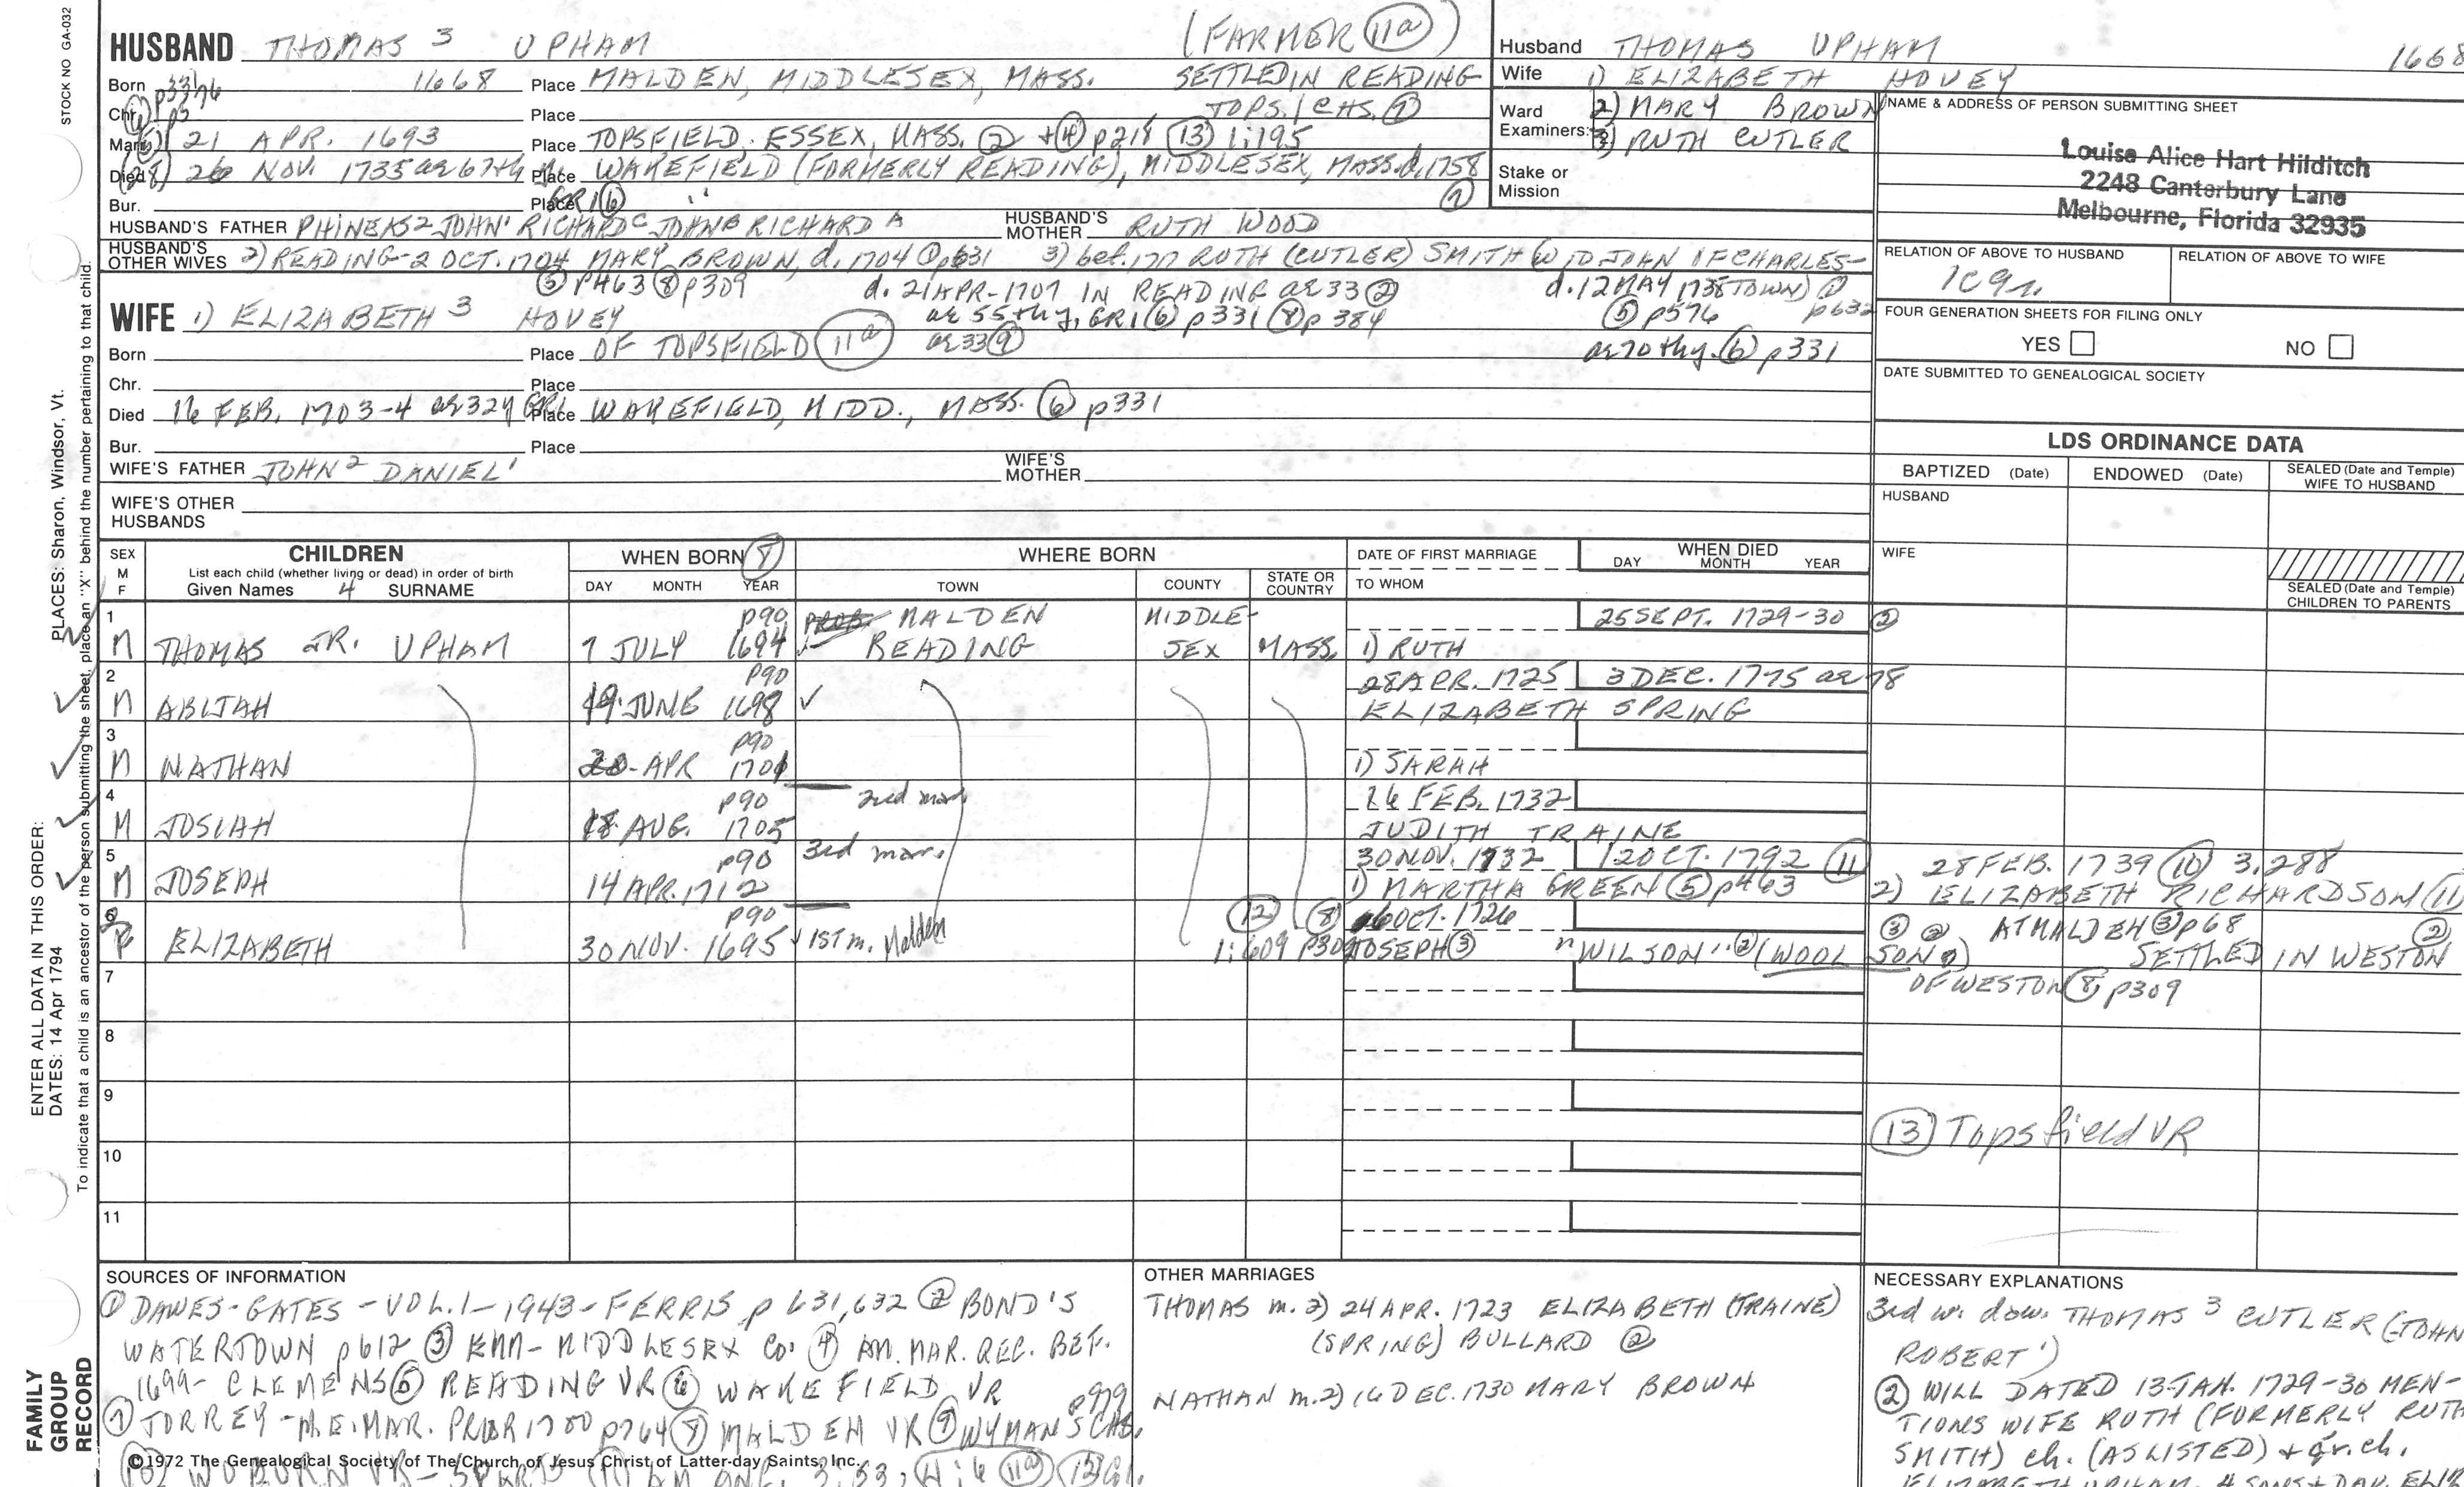 STOCK NO GA-032
PLACES: Sharon, Windsor, Vt.
ENTER ALL DATA IN THIS ORDER:
DATES: 14 Apr 1794
To indicate that a child is an ancestor of the person submitting the sheet, place an "X" behind the number pertaining to that child.
FAMILY GROUP RECORD
HUSBAND THOMAS 3 UPHAM (FARMER 11a)
Born 1668 Place MALDEN, MIDDLESEX, MASS. SETTLED IN READING
Chr. Place TOPS.
Marr. 21 APR. 1693 Place TOPSFIELD, ESSEX, MASS. 2 + 4 p218 13 1:195
Died 26 NOV. 1735 ae 67th y. Place WAKEFIELD (FORMERLY READING), MIDDLESEX, MASS. d. 1758
Bur. Place GR1 6 " 7
HUSBAND'S FATHER PHINEAS 2 JOHN 1 RICHARD C JOHN B RICHARD A HUSBAND'S MOTHER RUTH WOOD
HUSBAND'S OTHER WIVES 2) READING-2 OCT. 1704 MARY BROWN, d. 1704 1 p631 3) bef. RUTH (CUTLER) SMITH (WID JOHN OF CHARLES-
5 p463 8 p309 d. 21 APR-1707 IN READING ae 33 2 d. 12 MAY 1738 TOWN) 1 p632
WIFE 1) ELIZABETH 3 HOVEY ae 55th y. GR1 6 p331 8 p384 5 p576
Born Place OF TOPSFIELD 11a ae 33 9 ae 70th y. 6 p331
Chr. Place
Died 16 FEB. 1703-4 ae 32 y GR1 Place WAKEFIELD, MIDD., MASS. 6 p331
Bur. Place
WIFE'S FATHER JOHN 2 DANIEL 1 WIFE'S MOTHER
WIFE'S OTHER HUSBANDS
Husband THOMAS UPHAM 1668
Wife 1) ELIZABETH HOVEY
Ward Examiners: 2) MARY BROWN
3) RUTH CUTLER
Stake or Mission
NAME & ADDRESS OF PERSON SUBMITTING SHEET
Louise Alice Hart Hilditch
2248 Canterbury Lane
Melbourne, Florida 32935
RELATION OF ABOVE TO HUSBAND RELATION OF ABOVE TO WIFE
FOUR GENERATION SHEETS FOR FILING ONLY
YES NO
DATE SUBMITTED TO GENEALOGICAL SOCIETY
LDS ORDINANCE DATA
BAPTIZED (Date) ENDOWED (Date) SEALED (Date and Temple) WIFE TO HUSBAND
HUSBAND
WIFE
SEALED (Date and Temple) CHILDREN TO PARENTS
SEX M F CHILDREN WHEN BORN 8 WHERE BORN DATE OF FIRST MARRIAGE WHEN DIED
List each child (whether living or dead) in order of birth
Given Names 4 SURNAME DAY MONTH YEAR TOWN COUNTY STATE OR COUNTRY TO WHOM DAY MONTH YEAR
1 p90 PROB. MALDEN MIDDLE- 25 SEPT. 1729-30 2
M THOMAS JR. UPHAM 7 JULY 1694 READING SEX MASS. 1) RUTH
2 p90 28 APR. 1725 3 DEC. 1775 ae 78
M ABIJAH 19 JUNE 1698 ELIZABETH SPRING
3 p90
M NATHAN APR 1701 1) SARAH
4 p90 2nd mar. 16 FEB. 1732
M JOSIAH 18 AUG. 1705 JUDITH TRAINE
5 p90 3rd mar. 30 NOV. 1732 12 OCT. 1792 11 28 FEB. 1739 10 3.288
M JOSEPH 14 APR. 1712 1) MARTHA GREEN 5 p463 2) ELIZABETH RICHARDSON 11
6 p90 12 8 OCT. 1726 3 2 AT MALDEN 3 p68 2
F ELIZABETH 30 NOV. 1695 1ST m. Malden 1:609 p309 JOSEPH 3 "WILSON" 2 (WOOLSON) SETTLED IN WESTON
7 OF WESTON 8 p309
8
9
13 Topsfield VR
10
11
SOURCES OF INFORMATION
1 DAWES-GATES-VOL. 1-1943-FERRIS p 631,632 2 BOND'S
WATERTOWN p612 3 MIDDLESEX Co. 4 AM. MAR. REC. BEF.
1699-CLEMENS 5 READING VR 6 WAKEFIELD VR
7 TORREY-N.E. MAR. PRIOR 1700 p764 8 MALDEN VR 9 WYMAN'S CHS. p979
©1972 The Genealogical Society of The Church of Jesus Christ of Latter-day Saints, Inc.
10 WOBURN VR 3:53, 4:6 11a 12
OTHER MARRIAGES
THOMAS m. 2) 24 APR. 1723 ELIZABETH (TRAINE)
(SPRING) BULLARD 2
NATHAN m. 2) 16 DEC. 1730 MARY BROWN
NECESSARY EXPLANATIONS
3rd w. dau. THOMAS 3 CUTLER (JOHN
ROBERT 1)
2 WILL DATED 13 JAN. 1729-30 MEN-
TIONS WIFE RUTH (FORMERLY RUTH
SMITH) ch. (AS LISTED) + gr. ch.
ELIZABETH UPHAM. 4 SONS + DAU.